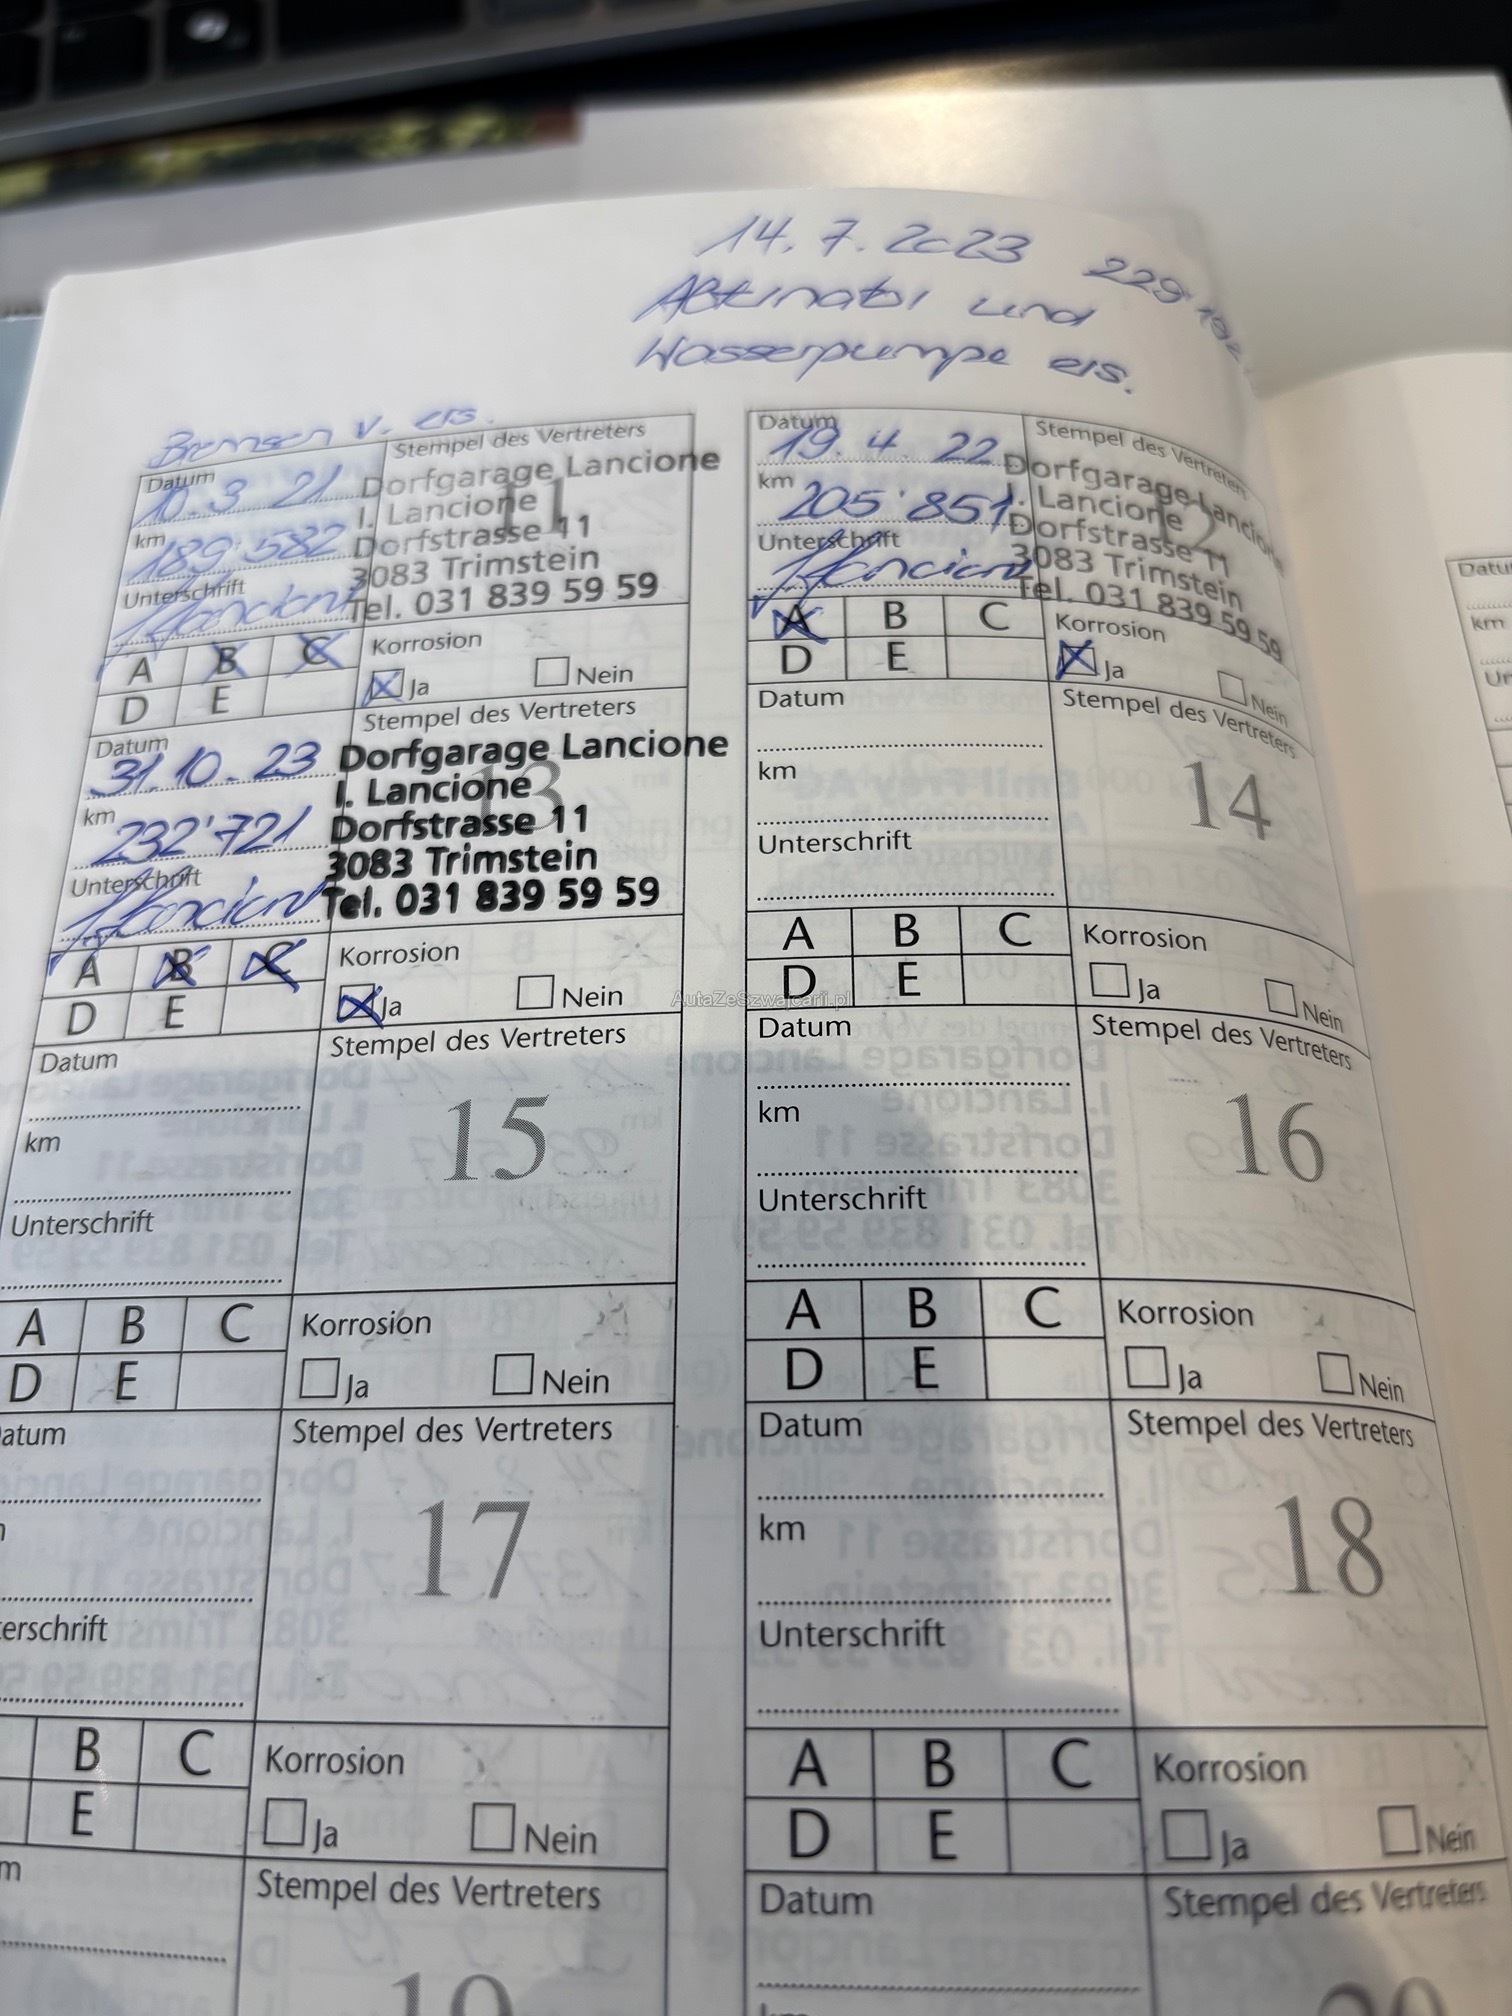 14. 7. 2023
und
Wasserpumpe ers.
Bremsen v. ers.
Datum
10. 3 21
Stempel des Vertreters
Dorfgarage Lancione
I. Lancione
Dorfstrasse 11
3083 Trimstein
Tel. 031 839 59 59
km
189'582
Unterschrift
11
A B C
D E
Korrosion
Ja Nein
Datum
19. 4. 22
Stempel des Vertreters
Dorfgarage Lancione
I. Lancione
Dorfstrasse 11
3083 Trimstein
Tel. 031 839 59 59
km
205'851
Unterschrift
12
A B C
D E
Korrosion
Ja Nein
Datum
31. 10. 23
Stempel des Vertreters
Dorfgarage Lancione
I. Lancione
Dorfstrasse 11
3083 Trimstein
Tel. 031 839 59 59
km
232'721
Unterschrift
13
A B C
D E
Korrosion
Ja Nein
Datum
Stempel des Vertreters
km
14
Unterschrift
A B C
D E
Korrosion
Ja Nein
AutaZeSzwajcarii.pl
Datum
Stempel des Vertreters
km
15
Unterschrift
A B C
D E
Korrosion
Ja Nein
Datum
Stempel des Vertreters
km
16
Unterschrift
A B C
D E
Korrosion
Ja Nein
atum
Stempel des Vertreters
17
erschrift
B C
E
Korrosion
Ja Nein
Datum
Stempel des Vertreters
km
18
Unterschrift
A B C
D E
Korrosion
Ja Nein
m
Stempel des Vertreters
19
Datum
Stempel des Vertreters
km
20
Datu
km
Un